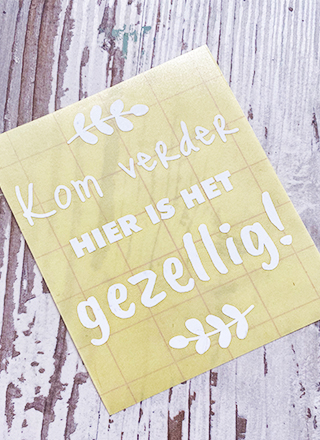 Kom verder
HIER IS HET
gezellig!